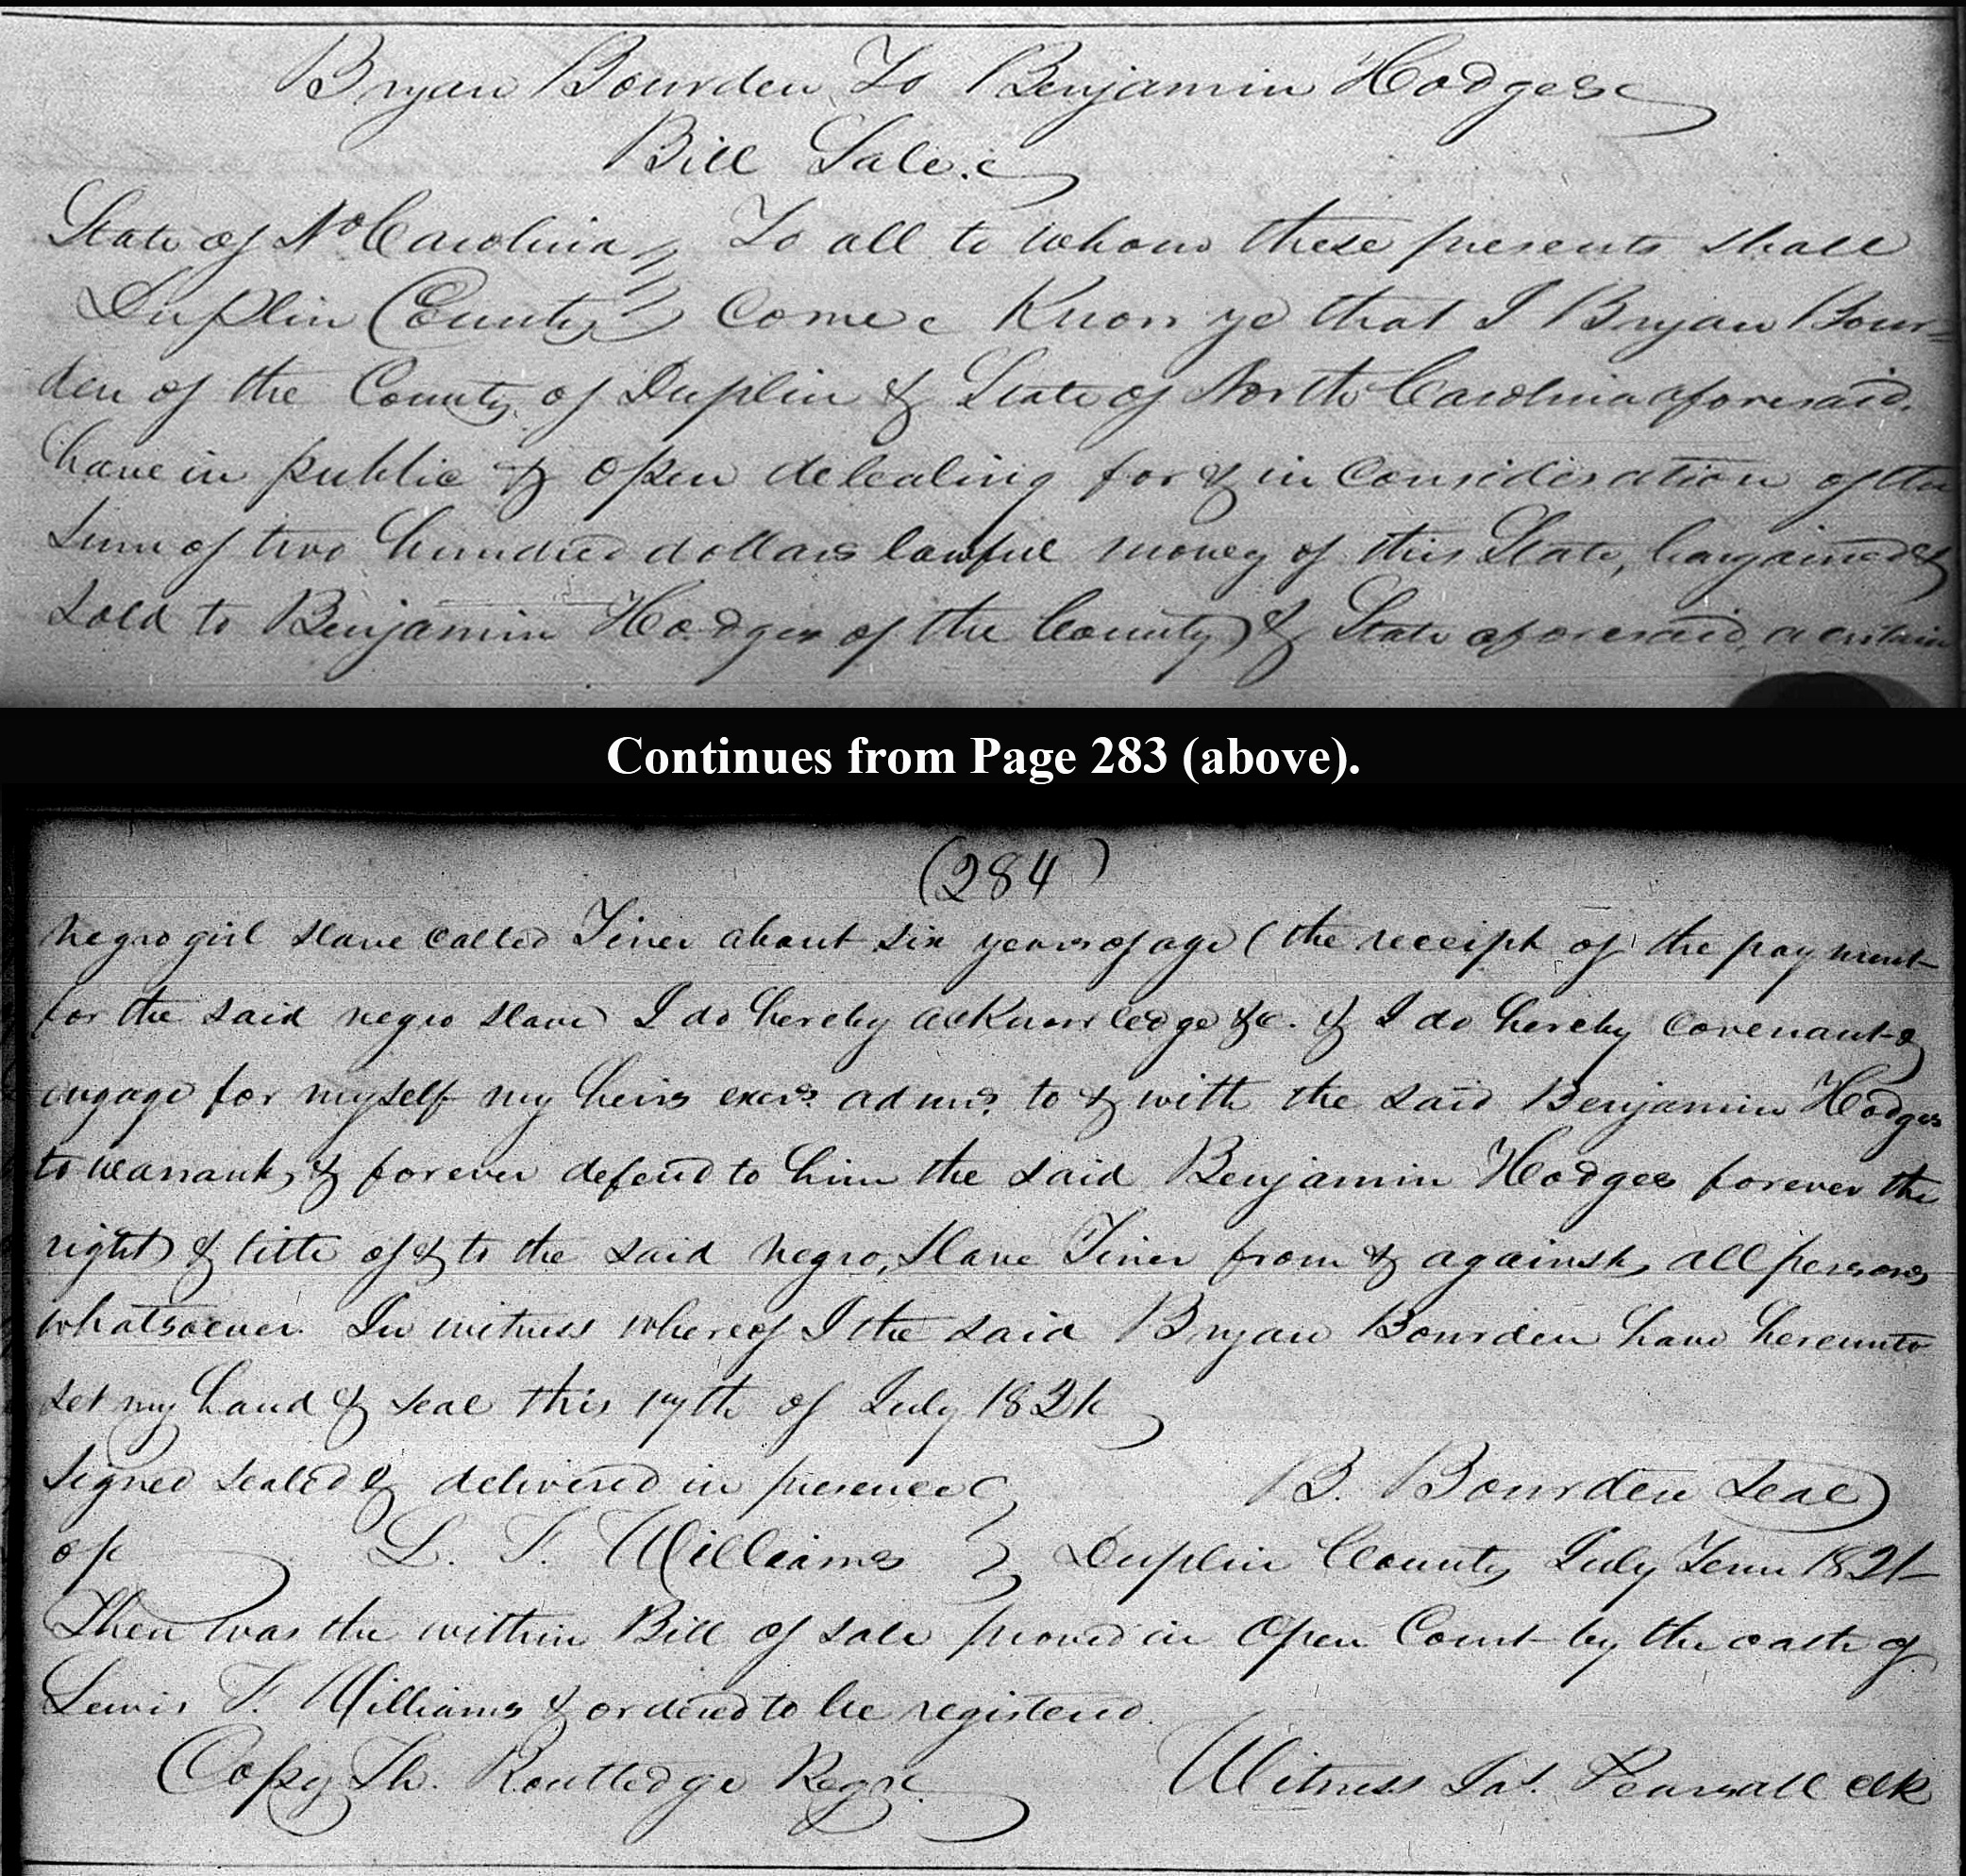 Bryan Bourden To Benjamin Hodges
Bill Sale.
State of No Carolina To all to whom these presents shall
Duplin County Come Know ye that I Bryan Bour=
den of the County of Duplin & State of North Carolina aforesaid.
have in public & open delealing for & in Consideration of the
Sum of two hundred dollars lawful money of this State, bargained &
Sold to Benjamin Hodges of the County & State aforesaid, a certain
Continues from Page 283 (above).
(284)
negro girl slave called Tiner about six years of age ( the receipt of the payment
for the said negro slave I do hereby acknowledge &c. & I do hereby covenant &
engage for myself my heirs exers. adms. to & with the said Benjamin Hodges
to warrant, & forever defend to him the said Benjamin Hodges forever the
right & title of & to the said negro, slave Tiner from & against, all persons
whatsoever. In witness whereof I the said Bryan Bourden have hereunto
set my hand & seal this 17th of July 1821
Signed sealed & delivered in presence B. Bourden Seal
of L. T. Williams Duplin County July Term 1821
Then was the within Bill of sale proved in Open Court by the oath of
Lewis T. Williams & ordered to be registered.
Copy Th. Routledge Regr. Witness Jas. Pearsall clk